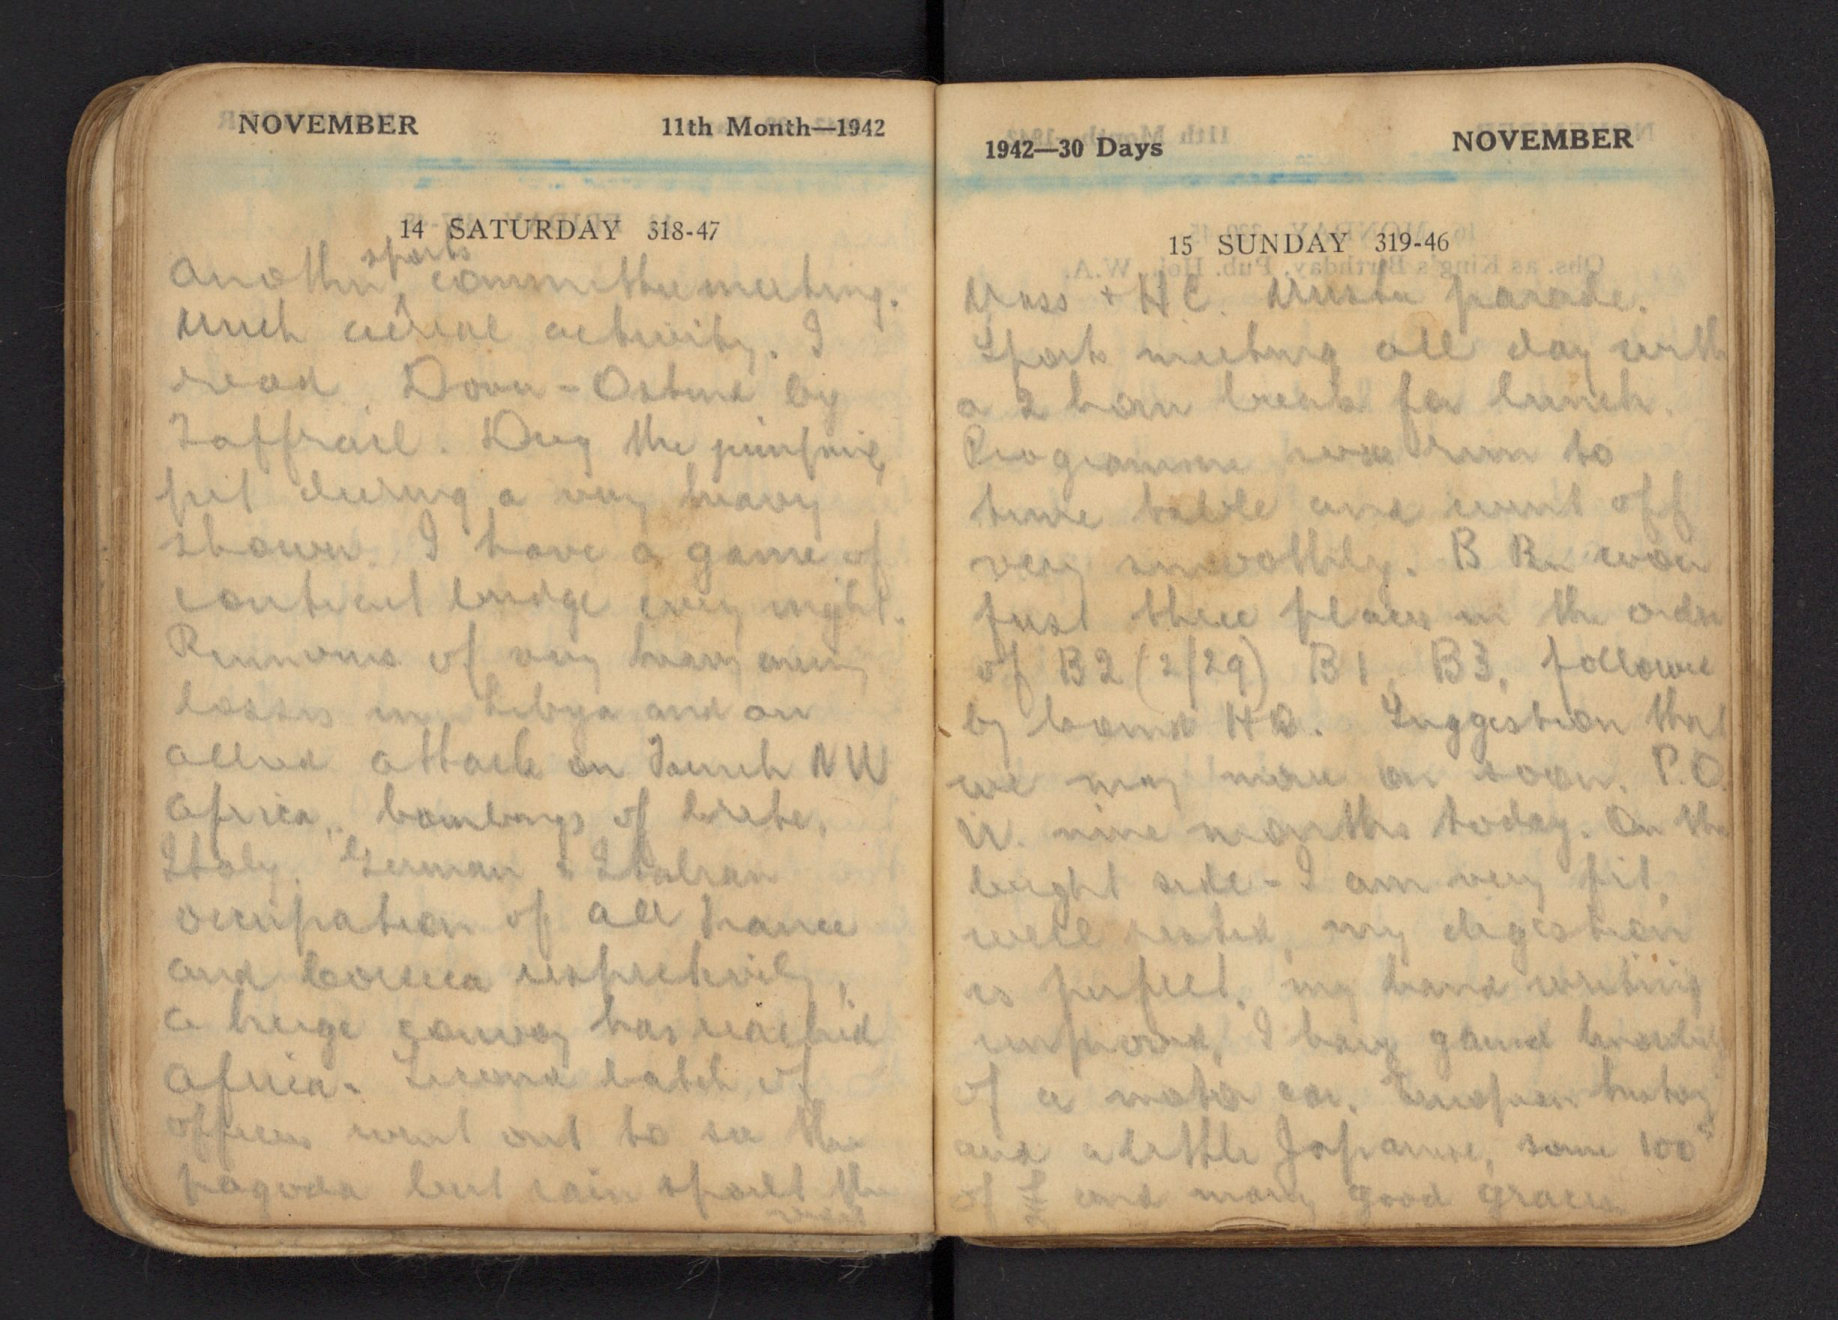 NOVEMBER 11th Month—1942
14 SATURDAY 318-47
Another sports committee meeting.
Much aerial activity. I
read Dover - Ostend by
Taffrail. Dug the
pit during a very heavy
shower. I have a game of
contract bridge every night.
Rumours of very heavy enemy
losses in Libya and an
allied attack on French NW
Africa, bombings of Crete,
Italy. German & Italian
occupation of all France
and Corsica respectively,
a huge convoy has reached
Africa. Second batch of
officers went out to see the
pagoda but rain spoilt the
visit
1942—30 Days NOVEMBER
15 SUNDAY 319-46
Mass + HC. Muster parade.
Sports meeting all day with
a 2 hour break for lunch.
Programme was run to
time table and went off
very smoothly. B Bn won
first three places in the order
of B2 (2/29) B1, B3, followed
by Comd HQ. Suggestion that
we may move on soon. P.O.
W. nine months today. On the
bright side - I am very fit,
well rested, my digestion
is perfect, my hand writing
improved, I have gained knowledge
of a motor car, European history
and a little Japanese, some 100s
of £ and many good graces